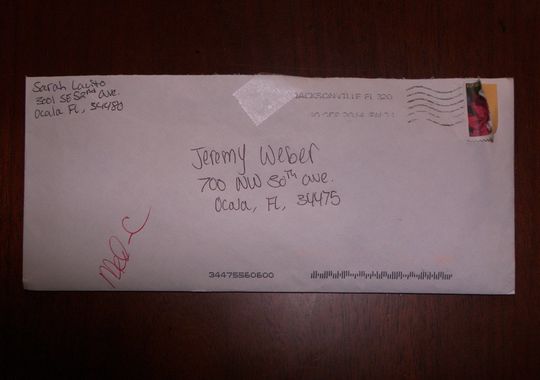 Sarah Lacito
3001 SE 52nd Ave.
Ocala FL, 34480
JACKSONVILLE FL 320
Jeremy Weber
700 NW 30th Ave.
Ocala, FL, 34475
34475560600